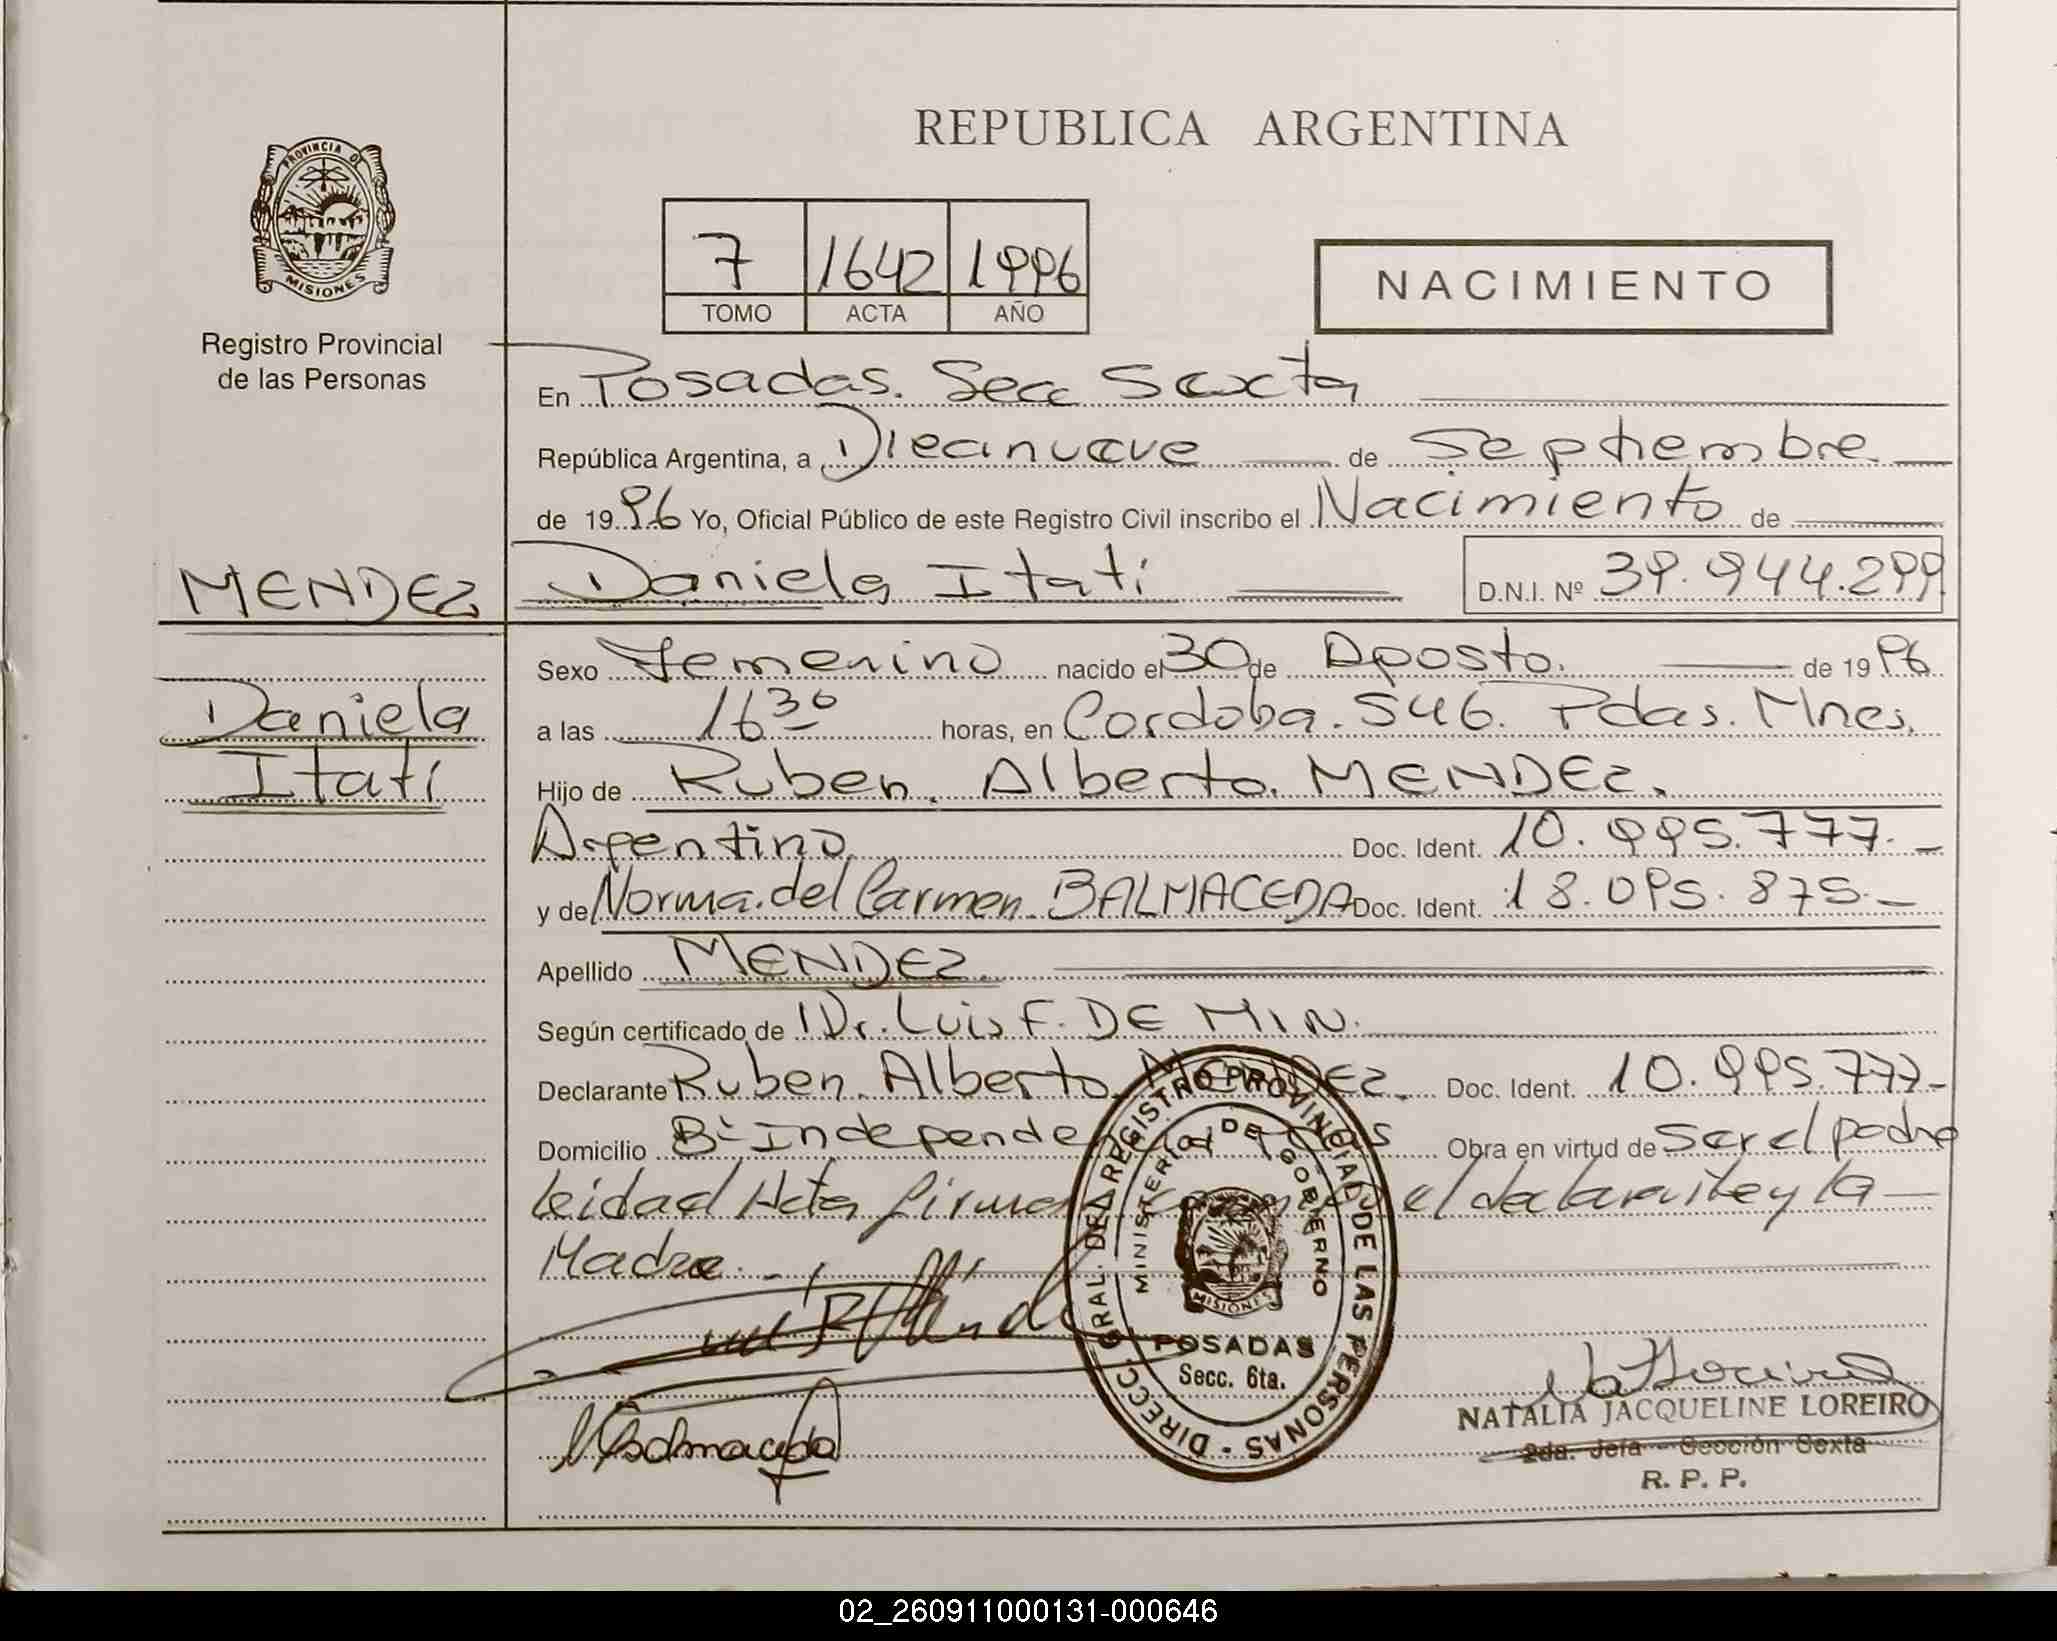 REPUBLICA ARGENTINA
PROVINCIA DE
MISIONES
Registro Provincial
de las Personas
7 1642 1996
TOMO ACTA AÑO
NACIMIENTO
En Posadas. Secc Sexta
República Argentina, a Diecinueve de Septiembre
de 1996 Yo, Oficial Público de este Registro Civil inscribo el Nacimiento de
MENDEZ Daniela Itatí D.N.I. Nº 39.944.299
Sexo Femenino nacido el 30 de Agosto. de 1996
Daniela
a las 16 30 horas, en Cordoba. 546. Pdas. Mnes.
Itatí
Hijo de Ruben. Alberto. MENDEZ.
Argentino Doc. Ident. 10.995.777.-
y de Norma. del Carmen. BALMACEDA Doc. Ident. 18.095.875.-
Apellido MENDEZ.
Según certificado de Dr. Luis F. DE MIN.
Declarante Ruben. Alberto MENDEZ. Doc. Ident. 10.995.777-
Domicilio Bº Independencia Obra en virtud de ser el padre
leidad Acta firman el declarante y la
Madre.-
DIRECC. GRAL. DEL REGISTRO PROVINCIAL DE LAS PERSONAS -
MINISTERIO DE GOBIERNO
MISIONES
POSADAS
Secc. 6ta.
NBalmaceda
NATALIA JACQUELINE LOREIRO
2da. Jefa - Sección Sexta
R. P. P.
02_260911000131-000646